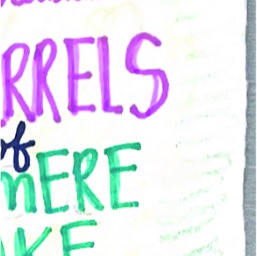 RRELS
of
MERE
KE